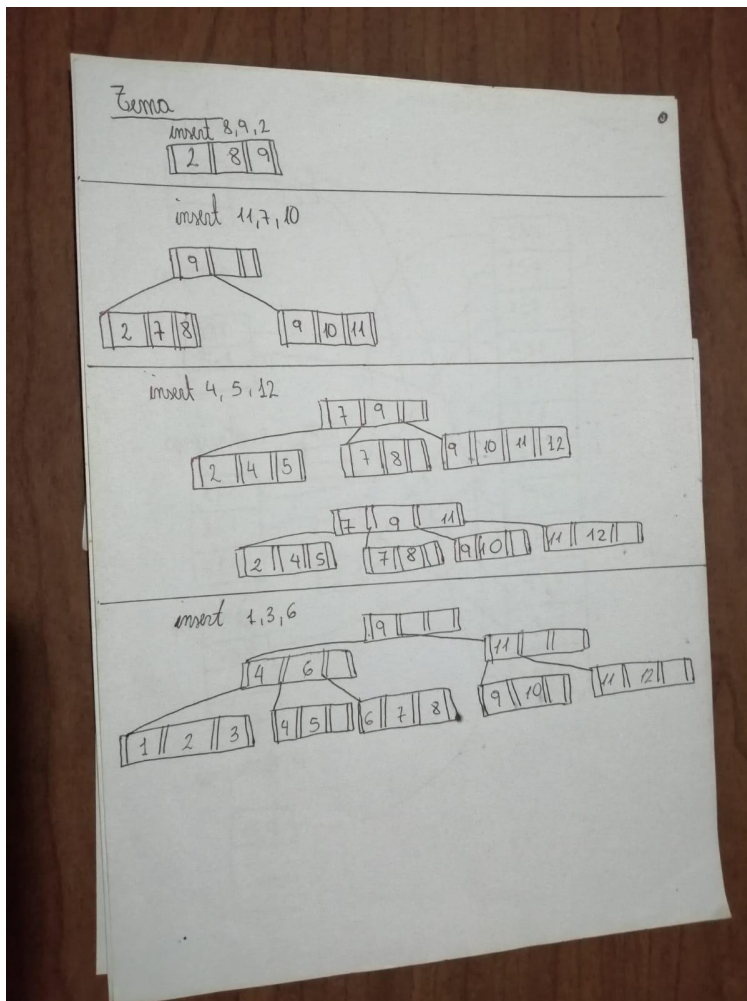 Tema
insert 8,9,2
2 8 9
insert 11,7,10
9
2 7 8 9 10 11
insert 4, 5, 12
7 9
2 4 5 7 8 9 10 11 12
7 9 11
2 4 5 7 8 9 10 11 12
insert 1,3,6
9
4 6 11
1 2 3 4 5 6 7 8 9 10 11 12